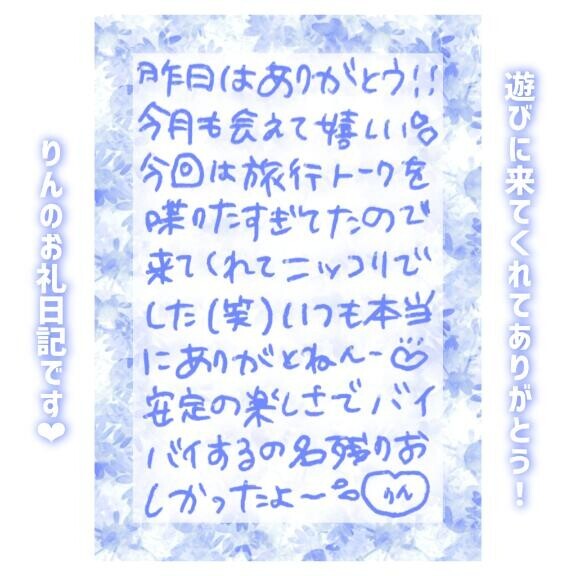 遊びに来てくれてありがとう!
昨日はありがとウ!!
今月も会えて嬉しい
今回は旅行トークを
喋りたすぎてたので
来てくれてニッコリで
した(笑)いつも本当
にありがとねん〜♡
安定の楽しさでバイ
バイするの名残りお
しかったよ〜
りん
りんのお礼日記です❤